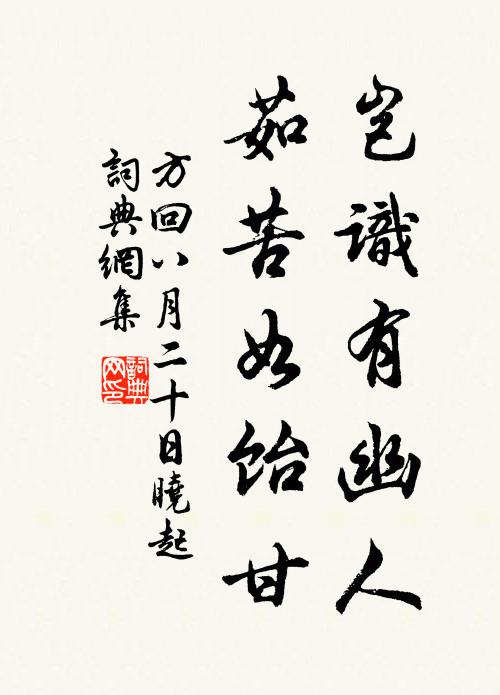 豈識有幽人
茹苦如飴甘
方回八月二十日曉起
詞典網集
詞典网印